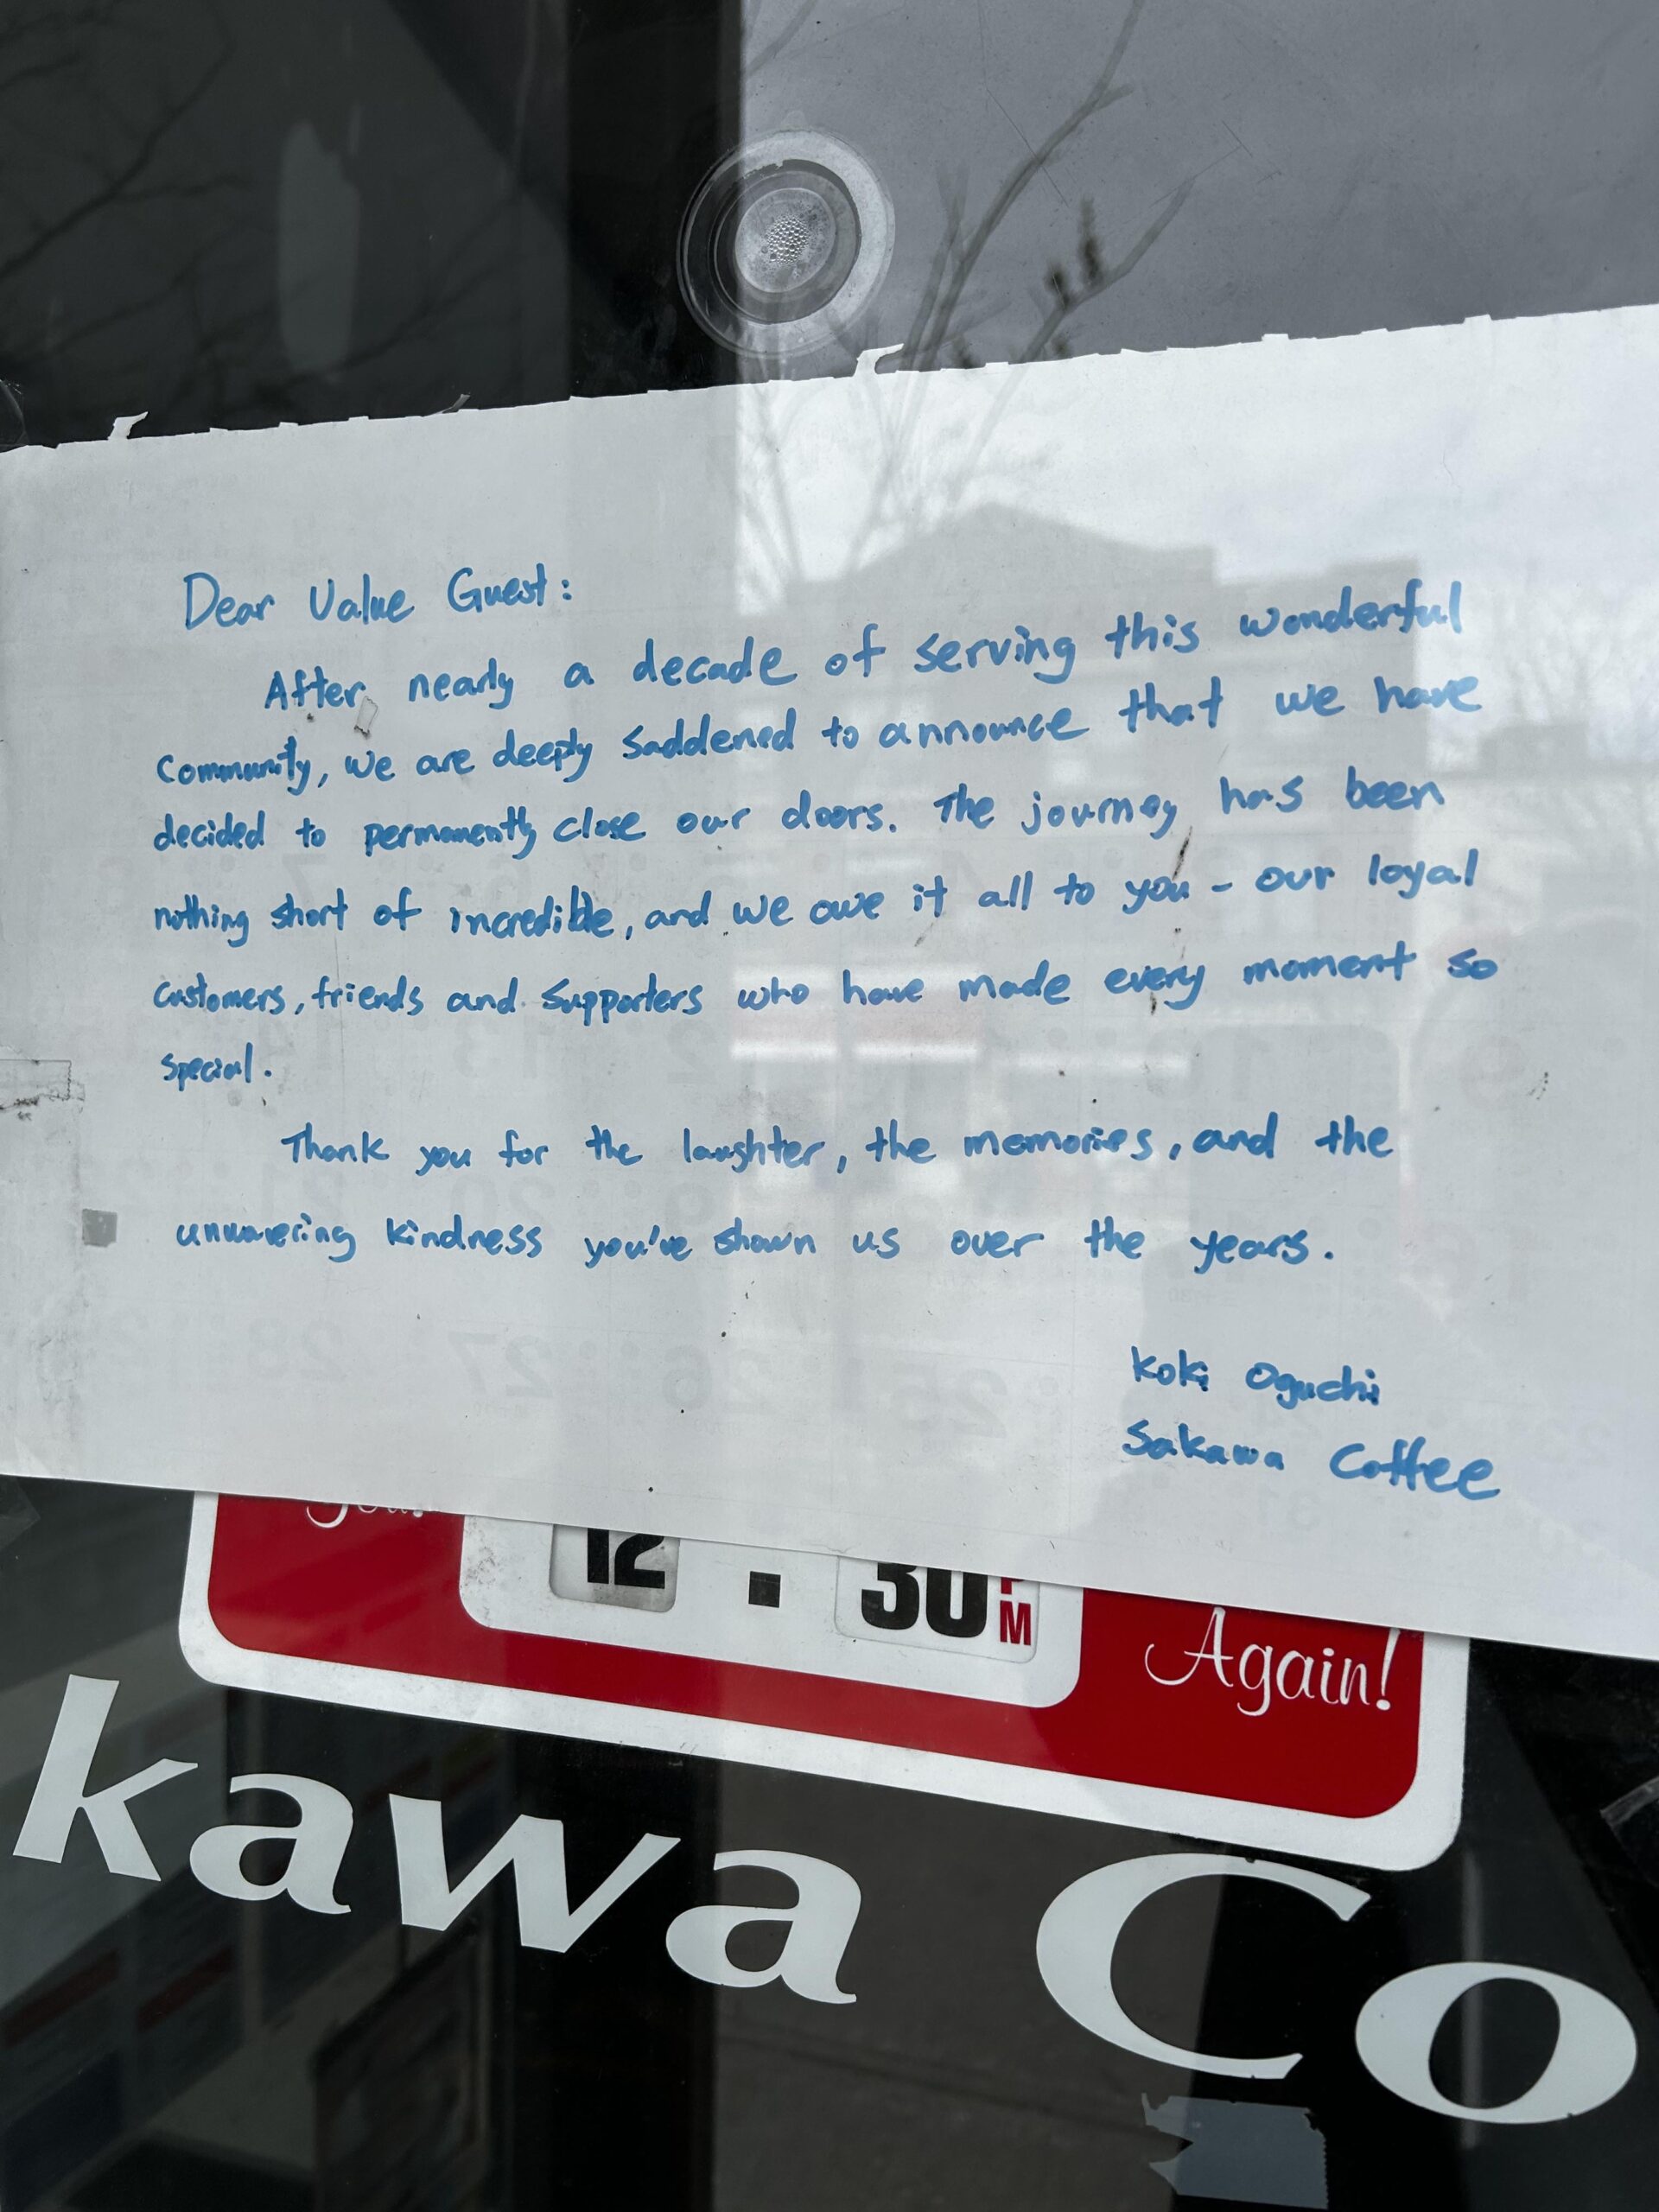 Dear Value Guest:
After nearly a decade of serving this wonderful
Community, we are deeply saddened to announce that we have
decided to permanently close our doors. The journey has been
nothing short of incredible, and we owe it all to you - our loyal
customers, friends and supporters who have made every moment so
special.
Thank you for the laughter, the memories, and the
unwavering kindness you've shown us over the years.
Koki Oguchi
Sakawa Coffee
you!
12 : 30 PM
Again!
kawa Co